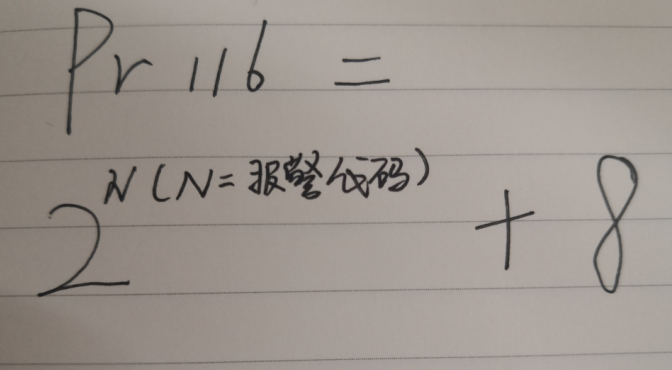 Pr 116 =
2^N(N=报警代码) + 8